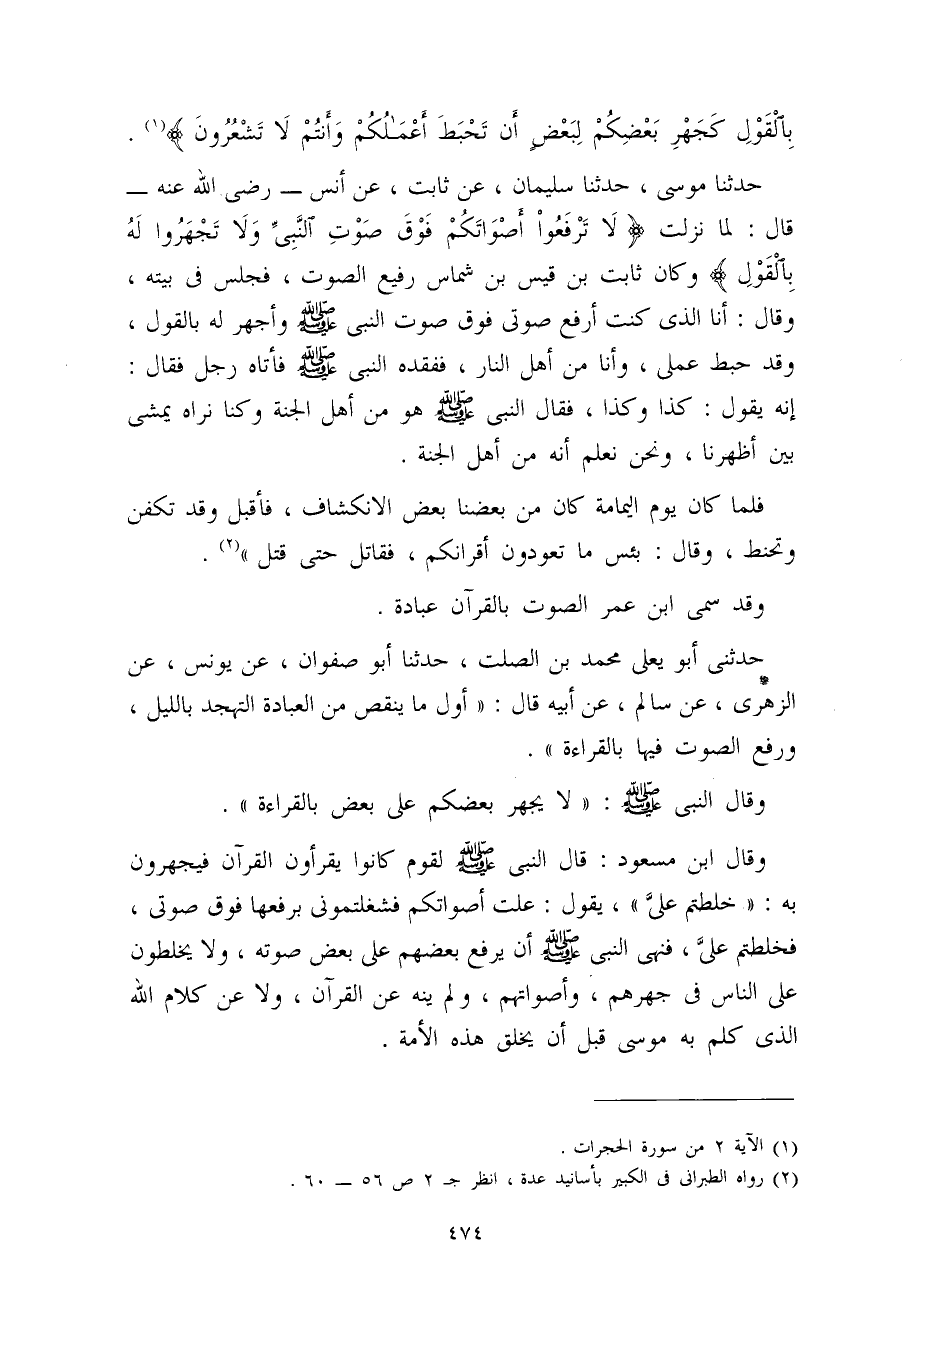 بِٱلْقَوْلِ كَجَهْرِ بَعْضِكُمْ لِبَعْضٍ أَن تَحْبَطَ أَعْمَٰلُكُمْ وَأَنتُمْ لَا تَشْعُرُونَ ﴾(١) .
حدثنا موسى ، حدثنا سليمان ، عن ثابت ، عن أنس ــ رضى الله عنه ــ
قال : لما نزلت ﴿ لَا تَرْفَعُوا۟ أَصْوَاتَكُمْ فَوْقَ صَوْتِ ٱلنَّبِىِّ وَلَا تَجْهَرُوا لَهُ
بِٱلْقَوْلِ ﴾ وكان ثابت بن قيس بن شماس رفيع الصوت ، فجلس فى بيته ،
وقال : أنا الذى كنت أرفع صوتى فوق صوت النبى ﷺ وأجهر له بالقول ،
وقد حبط عملى ، وأنا من أهل النار ، ففقده النبى ﷺ فأتاه رجل فقال :
إنه يقول : كذا وكذا ، فقال النبى ﷺ هو من أهل الجنة وكنا نراه يمشى
بين أظهرنا ، ونحن نعلم أنه من أهل الجنة .
فلما كان يوم اليمامة كان من بعضنا بعض الانكشاف ، فأقبل وقد تكفن
وتحنط ، وقال : بئس ما تعودون أقرانكم ، فقاتل حتى قتل »(٢) .
وقد سمى ابن عمر الصوت بالقرآن عبادة .
حدثنى أبو يعلى محمد بن الصلت ، حدثنا أبو صفوان ، عن يونس ، عن
الزهرى ، عن سالم ، عن أبيه قال : « أول ما ينقص من العبادة التهجد بالليل ،
ورفع الصوت فيها بالقراءة » .
وقال النبى ﷺ : « لا يجهر بعضكم على بعض بالقراءة » .
وقال ابن مسعود : قال النبى ﷺ لقوم كانوا يقرأون القرآن فيجهرون
به : « خلطتم علىَّ » ، يقول : علت أصواتكم فشغلتمونى برفعها فوق صوتى ،
فخلطتم علىَّ ، فنهى النبى ﷺ أن يرفع بعضهم على بعض صوته ، ولا يخلطون
على الناس فى جهرهم ، وأصواتهم ، ولم ينه عن القرآن ، ولا عن كلام الله
الذى كلم به موسى قبل أن يخلق هذه الأمة .
(١) الآية ٢ من سورة الحجرات .
(٢) رواه الطبرانى فى الكبير بأسانيد عدة ، انظر جـ ٢ ص ٥٦ ــ ٦٠ .
٤٧٤